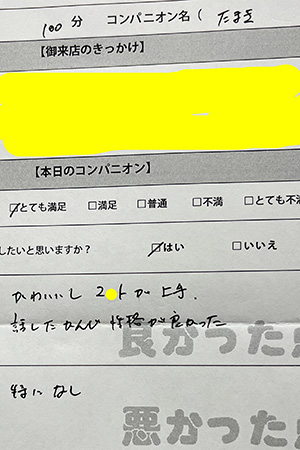 100 分 コンパニオン名 ( たま
【御来店のきっかけ】
【本日のコンパニオン】
☑とても満足 □満足 □普通 □不満 □とても不満
したいと思いますか? ☑はい □いいえ
かわいいし 2 トが上手.
話したかんじ 性格が良かった
良かった点
特になし
悪かった点